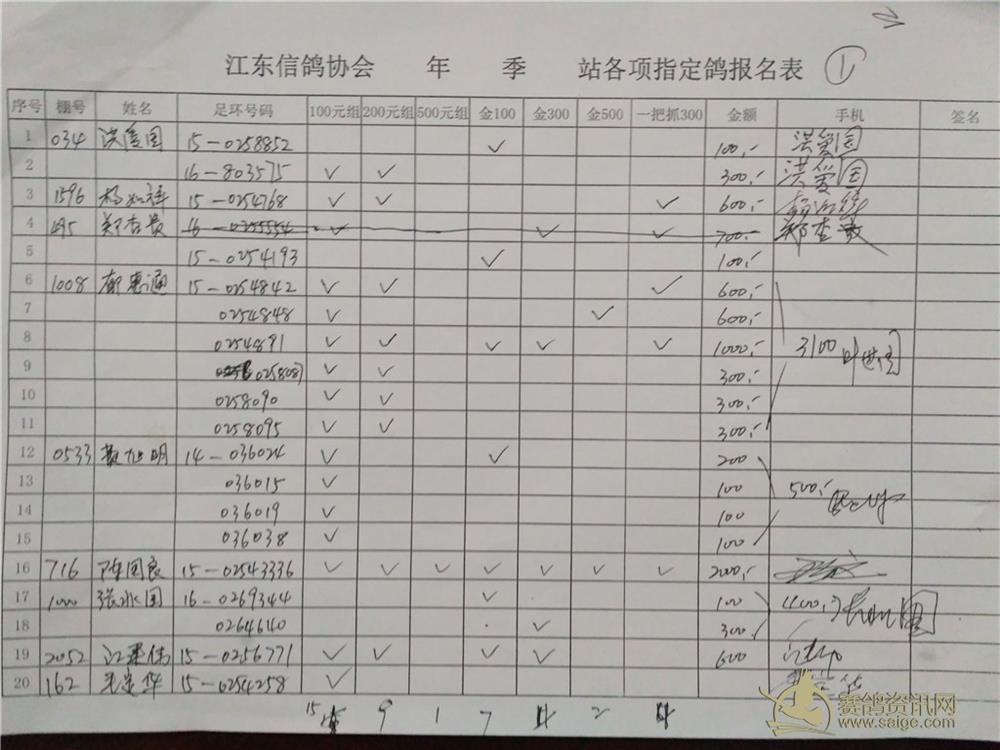 江东信鸽协会 年 季 站各项指定鸽报名表 ①
序号 棚号 姓名 足环号码 100元组 200元组 500元组 金100 金300 金500 一把抓300 金额 手机 签名
1 034 洪爱国 15-0258852 ✓ 100,- 洪爱国
2 16-803575 ✓ ✓ 300,- 洪爱国
3 1596 15-0254768 ✓ ✓ ✓ 600,-
4 495 郑杏贵 16-0255554 ✓ ✓ ✓ 700,- 郑杏贵
5 15-0254193 ✓ 100,-
6 1008 15-0254842 ✓ ✓ ✓ 600,-
7 0254848 ✓ ✓ 600,-
8 0254891 ✓ ✓ ✓ ✓ ✓ 1000,- 3100
9 0258087 ✓ ✓ 300,-
10 0258090 ✓ ✓ 300,-
11 0258095 ✓ ✓ 300,-
12 0533 14-036024 ✓ ✓ 200
13 036015 ✓ 100 500,-
14 036019 ✓ 100
15 036038 ✓ 100
16 716 陈国良 15-02543336 ✓ ✓ ✓ ✓ ✓ ✓ ✓ 2000,-
17 1000 张水国 16-0269344 ✓ 100 400,-
18 0264640 ✓ 300
19 2052 15-0256771 ✓ ✓ ✓ ✓ 600
20 162 15-0254258 ✓
15 9 1 7 2
赛鸽资讯网
www.saige.com